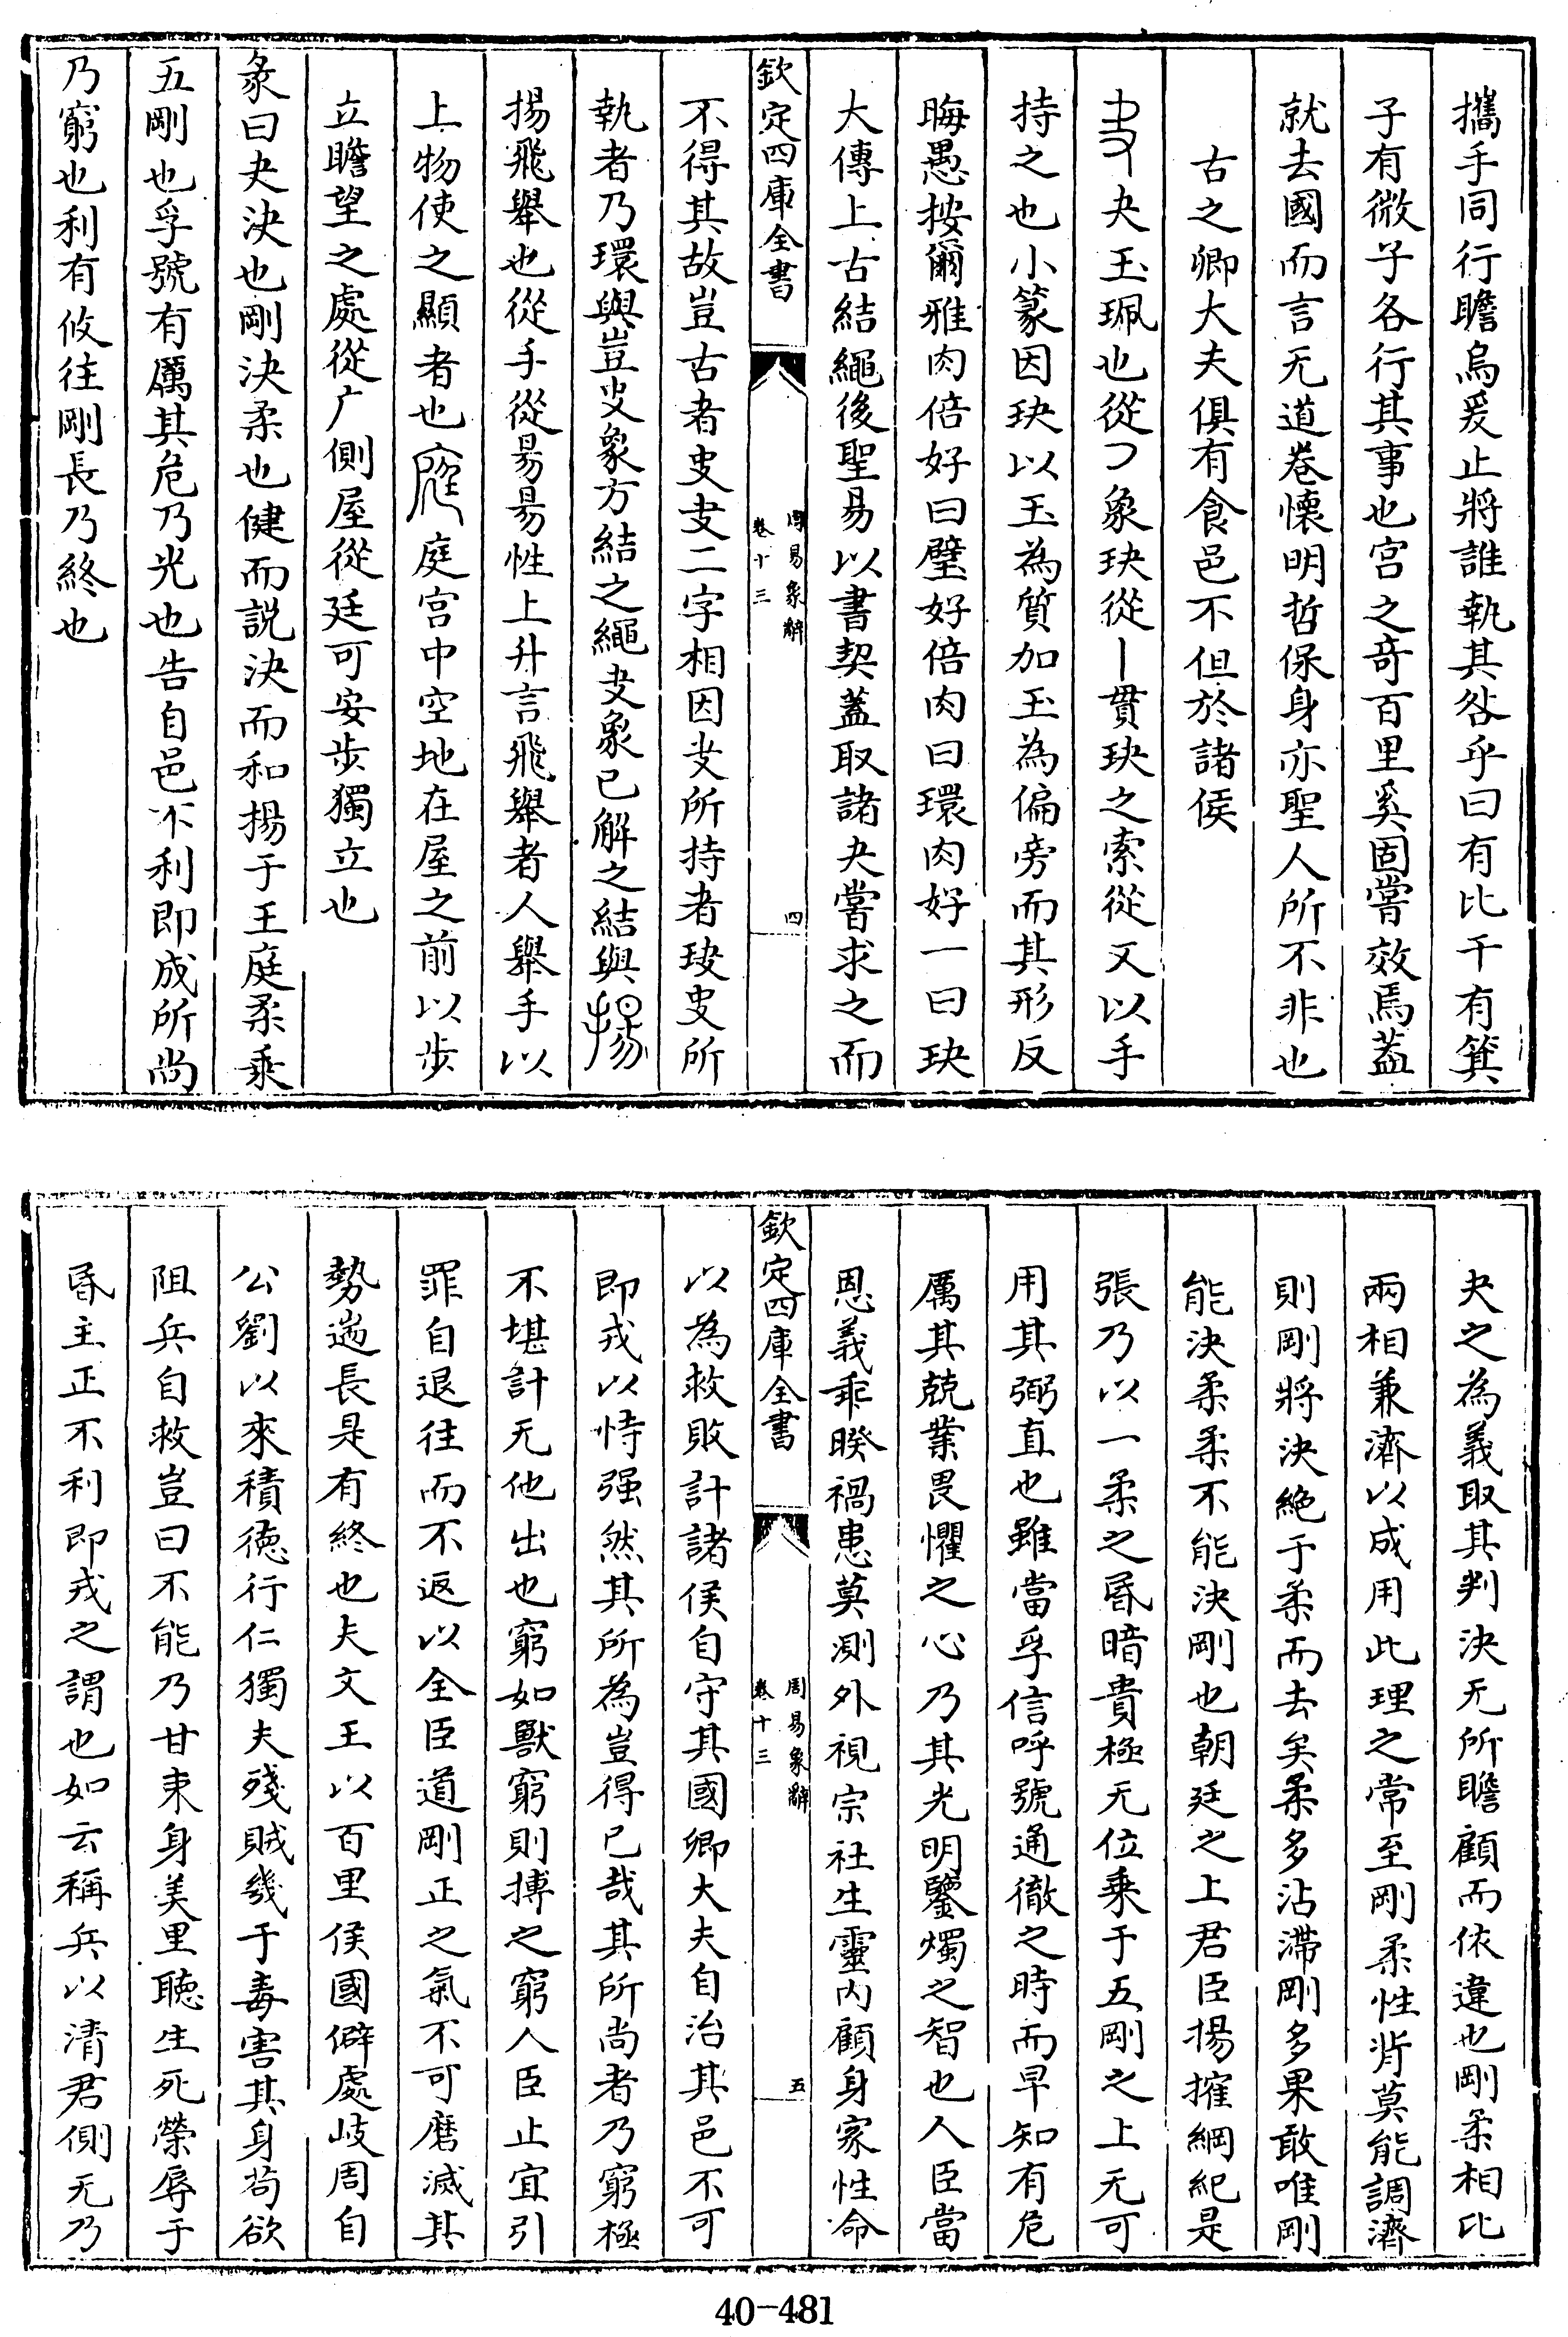 攜手同行瞻烏爰止將誰執其咎乎曰有比干有箕
子有微子各行其事也宫之奇百里奚固嘗效焉蓋
就去國而言无道卷懷明哲保身亦聖人所不非也
古之卿大夫俱有食邑不但於諸侯
夬玉珮也從㇇象玦從丨貫玦之索從又以手
持之也小篆因玦以玉為質加玉為偏旁而其形反
晦愚按爾雅肉倍好曰璧好倍肉曰環肉好一曰玦
大傳上古結繩後聖易以書契蓋取諸夬嘗求之而
欽定四庫全書
周易象辭
卷十三
四
不得其故豈古者二字相因所持者所
執者乃環與豈象方結之繩象已解之結與
揚飛舉也從手從昜昜性上升言飛舉者人舉手以
上物使之顯者也庭宫中空地在屋之前以步
立瞻望之處從广側屋從廷可安步獨立也
彖曰夬決也剛決柔也健而説決而和揚于王庭柔乘
五剛也孚號有厲其危乃光也告自邑不利即戎所尚
乃窮也利有攸往剛長乃終也
夬之為義取其判決无所瞻顧而依違也剛柔相比
兩相兼濟以成用此理之常至剛柔性背莫能調濟
則剛將決絶于柔而去矣柔多沾滯剛多果敢唯剛
能決柔柔不能決剛也朝廷之上君臣揚搉綱紀是
張乃以一柔之昬暗貴極无位乘于五剛之上无可
用其弼直也雖當孚信呼號通徹之時而早知有危
厲其兢業畏懼之心乃其光明鑒燭之智也人臣當
恩義乖暌禍患莫測外視宗社生靈内顧身家性命
欽定四庫全書
周易象辭
卷十三
五
以為救敗計諸侯自守其國卿大夫自治其邑不可
即戎以恃强然其所為豈得已哉其所尚者乃窮極
不堪計无他出也窮如獸窮則摶之窮人臣止宜引
罪自退往而不返以全臣道剛正之氣不可磨滅其
勢遄長是有終也夫文王以百里侯國僻處岐周自
公劉以來積徳行仁獨夫殘賊幾于毒害其身茍欲
阻兵自救豈曰不能乃甘束身羑里聴生死榮辱于
昬主正不利即戎之謂也如云稱兵以清君側无乃
40-481